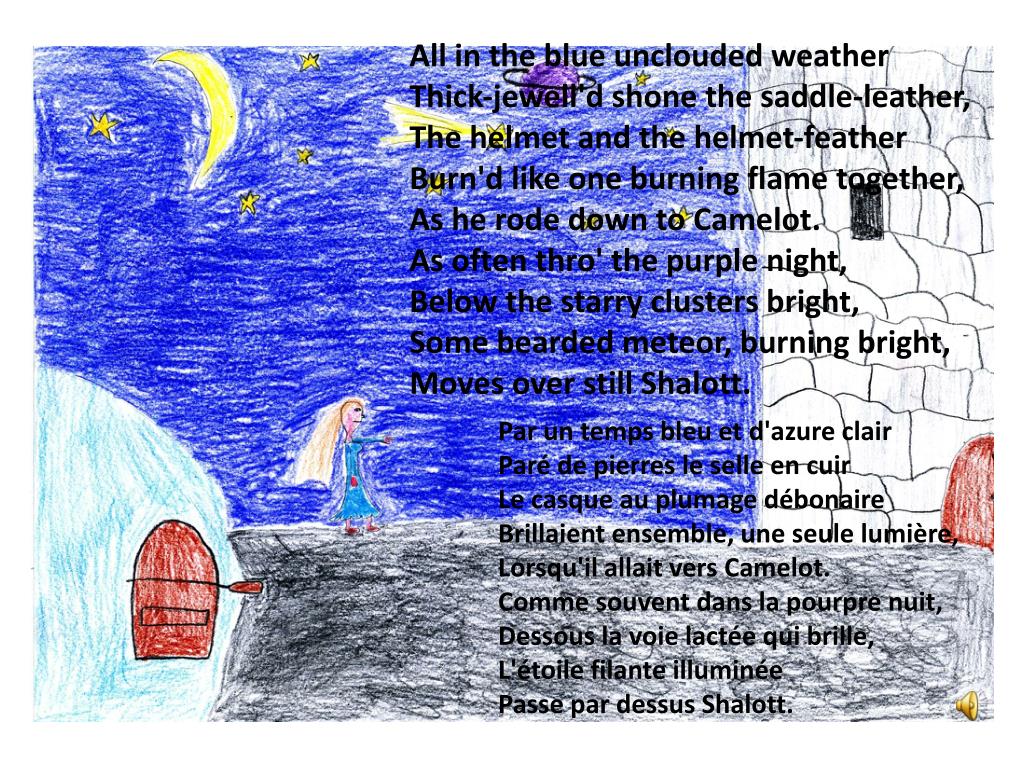 All in the blue unclouded weather
Thick-jewell'd shone the saddle-leather,
The helmet and the helmet-feather
Burn'd like one burning flame together,
As he rode down to Camelot.
As often thro' the purple night,
Below the starry clusters bright,
Some bearded meteor, burning bright,
Moves over still Shalott.
Par un temps bleu et d'azure clair
Paré de pierres le selle en cuir
Le casque au plumage débonaire
Brillaient ensemble, une seule lumière,
Lorsqu'il allait vers Camelot.
Comme souvent dans la pourpre nuit,
Dessous la voie lactée qui brille,
L'étoile filante illuminée
Passe par dessus Shalott.